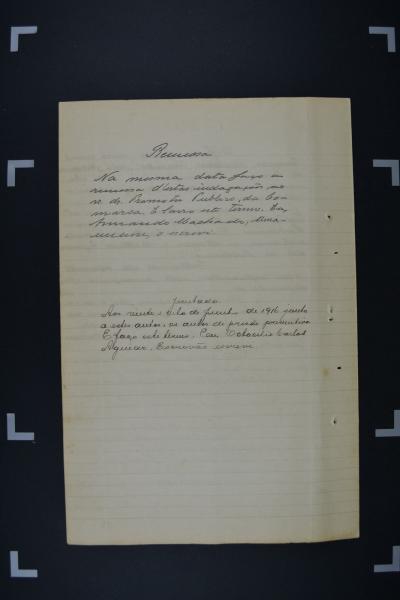 Remessa
Na mesma data faço a
remessa d'estas indagações ao
sr. dr. Promotor Publico, da Co-
marca. E lavro este termo. Eu,
Machado,
o escrevi.
Juntada
Aos vinte e oito de Junho de 1916 junto
a estes autos, os autos de prisão preventiva
E faço este termo. Eu, Carlos
Aguiar, Escrivão escrevi.